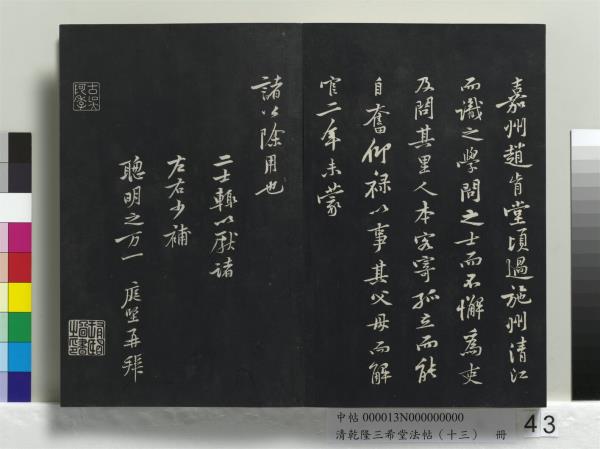 嘉州趙肯堂頃過施州清江
而識之學問之士而不懈為吏
及問其里人本客寄孤立而能
自奮仰祿以事其父母而解
官二年未蒙
諸公除用也
二士輒以厭諸
左右少補
聰明之万一 庭堅再拜
中帖 000013N000000000
清乾隆三希堂法帖（十三） 冊
43